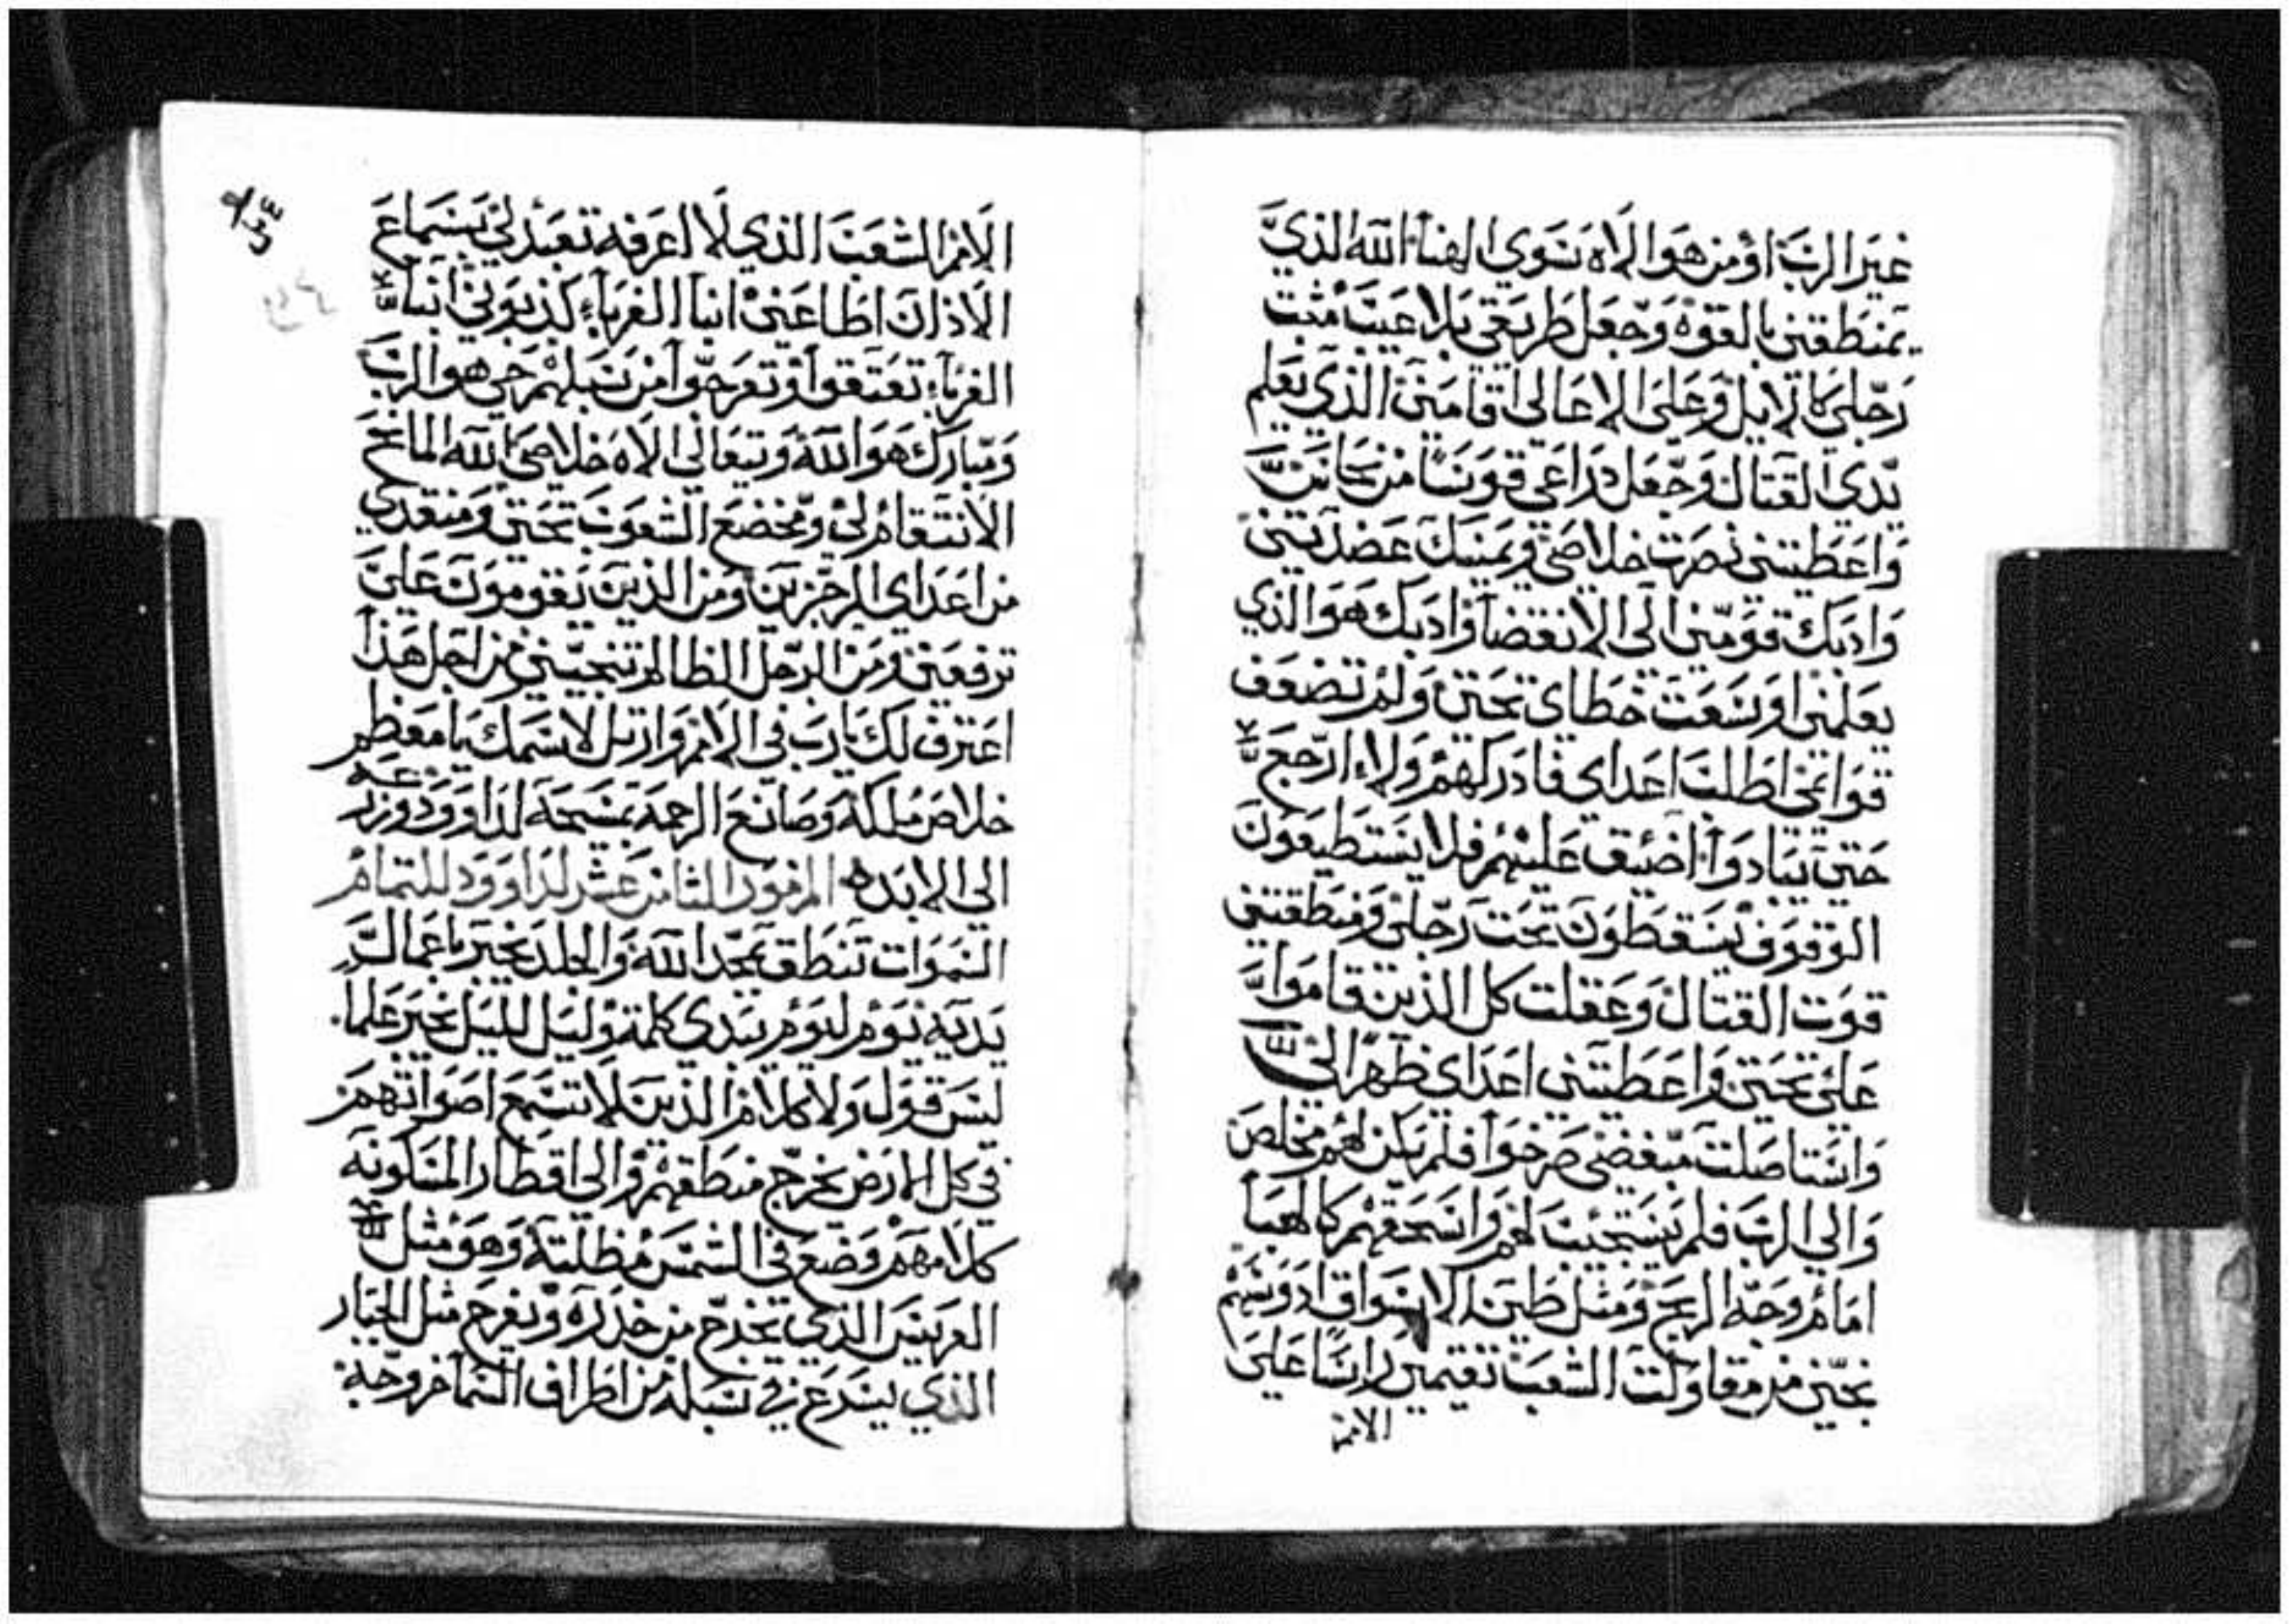 غير الرب او من هو الاه سوى الهنا. الله الذي
يمنطقني بالقوه وجعل طريقي بلا عيب مثبت
رجلي كالايل وعلى الاعالي اقامني الذي يعلم
يدي القتال وجعل دراعي قوسا من نحاس
واعطيتني نصرت خلاصي ويمينك عضدتني
وادبك قومني الى الانقضا وادبك هو الذي
يعلمني اوسعت خطاي تحتي ولم تضعف
قوايمي اطلب اعداي فادركهم ولاء ارجع
حتى يبادوا. اضيق عليهم فلا يستطيعون
الوقوف يسقطون تحت رجلي ومنطقتني
قوت القتال وعقلت كل الذين قاموا
علي تحتي واعطيتني اعداي ظهرا الي
واستاصلت مبغضي صرخوا فلم يكن لهم مخلص
والي الرب فلم يستجيب لهم واسحقهم كالهبا
امام وجه الريح ومثل طين الاسواق ادوسهم
نجيني من مقاولت الشعب تقيمني راسا على
الامم
الامم الشعب الذي لا اعرفه تعبد لي بسماع
الاذان اطاعني ابنا الغرباء كذبوني ابنا
الغرباء تعتقوا وتعرجوا من سبلهم حي هو الرب
ومبارك هو الله وتعالى الاه خلاصي الله المانح
الانتقام لي ومخضع الشعوب تحتي ومنقدي
من اعداي الرجزين ومن الذين يقومون علي
ترفعني ومن الرجل الظالم تنجيني من اجل هذا
اعترف لك يا رب في الامم وارتل لاسمك يا معظم
خلاص ملكه وصانع الرحمة بمسيحه لداوود وزرعه
الى الابد. المزمور الثامن عشر لداوود للتمام
السموات تنطق بمجد الله والجلد يخبر باعمال
يديه يوم ليوم يبدي كلمة وليل لليل يخبر علما.
ليس قول ولا كلام الذين لا تسمع اصواتهم
في كل الارض يخرج منطقهم والى اقطار المسكونه
كلامهم وضع في الشمس مظلته وهو مثل
العريس الذي يخرج من خدره ويفرح مثل الجبار
الذي يسرع في سبله من اطراف السما خروجه